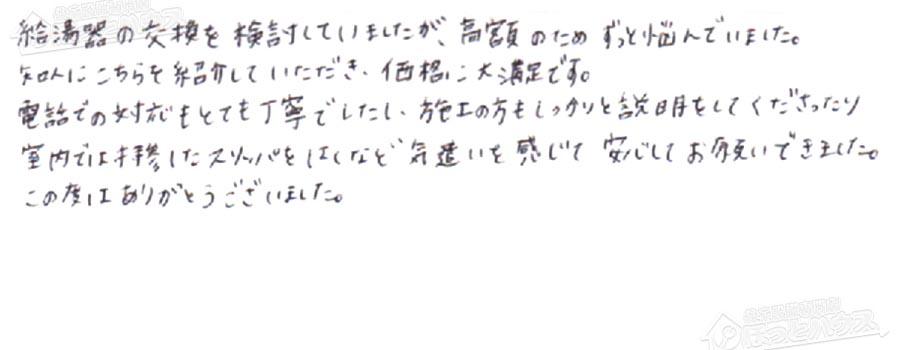 給湯器の交換を検討していましたが、高額のためずっと悩んでいました。
知人にこちらを紹介していただき、価格に大満足です。
電話での対応もとても丁寧でしたし、施工の方もしっかりと説明をしてくださったり
室内では持参したスリッパをはくなど気遣いを感じて安心してお願いできました。
この度はありがとうございました。
ほっとハウス